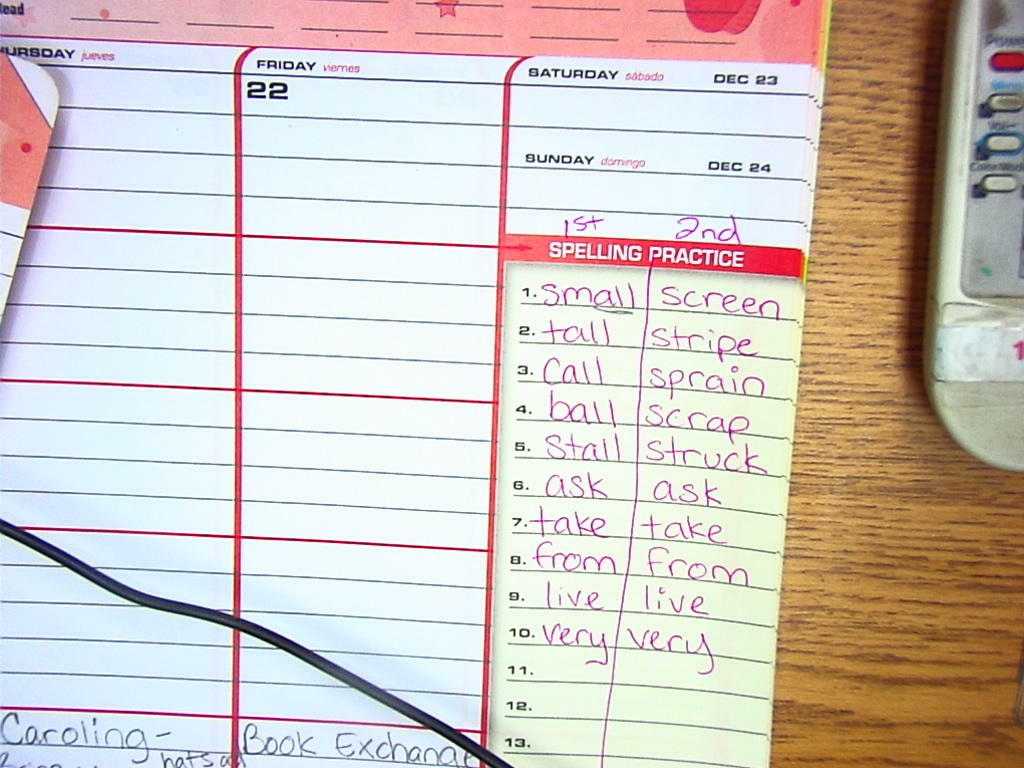 THURSDAY jueves
FRIDAY viernes
22
SATURDAY sábado DEC 23
SUNDAY domingo DEC 24
1st 2nd
SPELLING PRACTICE
1. small screen
2. tall stripe
3. call sprain
4. ball scrap
5. stall struck
6. ask ask
7. take take
8. from from
9. live live
10. very very
11.
12.
13.
Caroling-
hats
Book Exchange